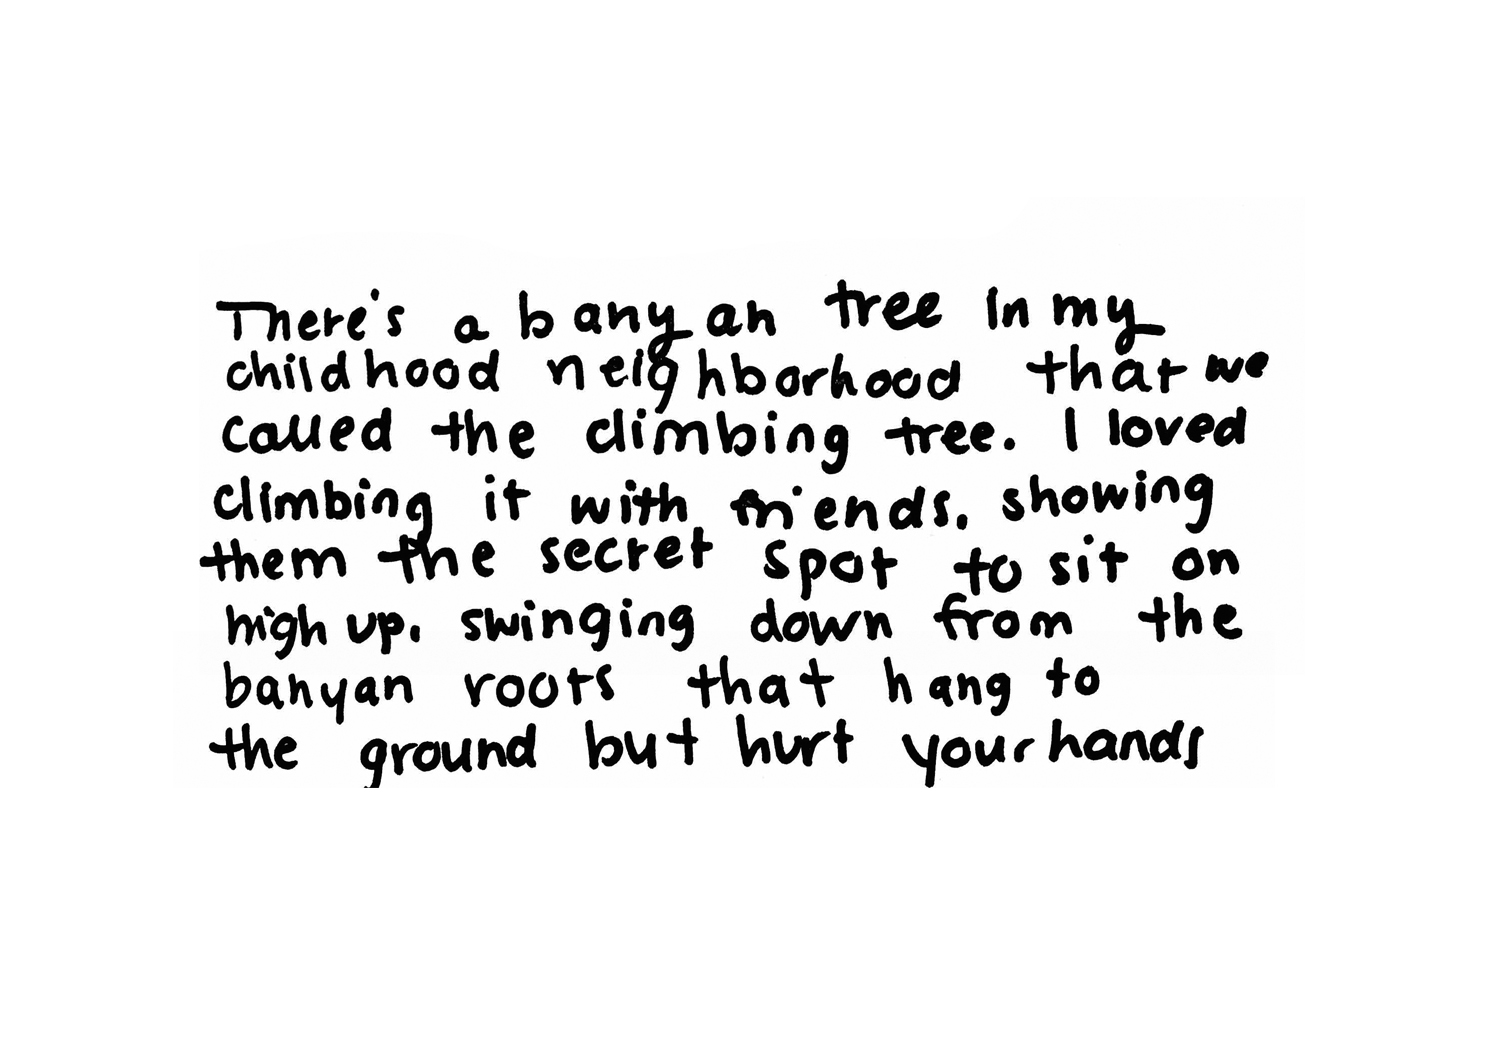 There's a banyan tree in my
childhood neighborhood that we
called the climbing tree. I loved
climbing it with friends. showing
them the secret spot to sit on
high up. swinging down from the
banyan roots that hang to
the ground but hurt your hands